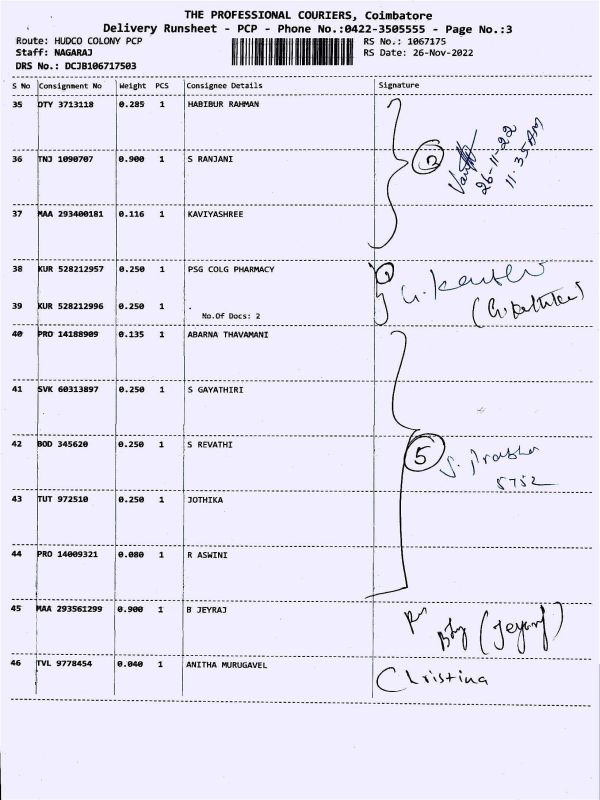 THE PROFESSIONAL COURIERS, Coimbatore
Delivery Runsheet - PCP - Phone No.:0422-3505555 - Page No.:3
Route: HUDCO COLONY PCP RS No.: 1067175
Staff: NAGARAJ RS Date: 26-Nov-2022
DRS No.: DCJB106717503
S No Consignment No Weight PCS Consignee Details Signature
35 DTY 3713118 0.285 1 HABIBUR RAHMAN
26-11-22
11.35 AM
36 TNJ 1090707 0.900 1 S RANJANI
37 MAA 293400181 0.116 1 KAVIYASHREE
38 KUR 528212957 0.250 1 PSG COLG PHARMACY
39 KUR 528212996 0.250 1
No.Of Docs: 2
40 PRO 14188909 0.135 1 ABARNA THAVAMANI
41 SVK 60313897 0.250 1 S GAYATHIRI
42 BOD 345620 0.250 1 S REVATHI
5 S. Prabha
5752
43 TUT 972510 0.250 1 JOTHIKA
44 PRO 14009321 0.080 1 R ASWINI
45 MAA 293561299 0.900 1 B JEYRAJ
(Jeyaraj)
46 TVL 9778454 0.040 1 ANITHA MURUGAVEL
Christina